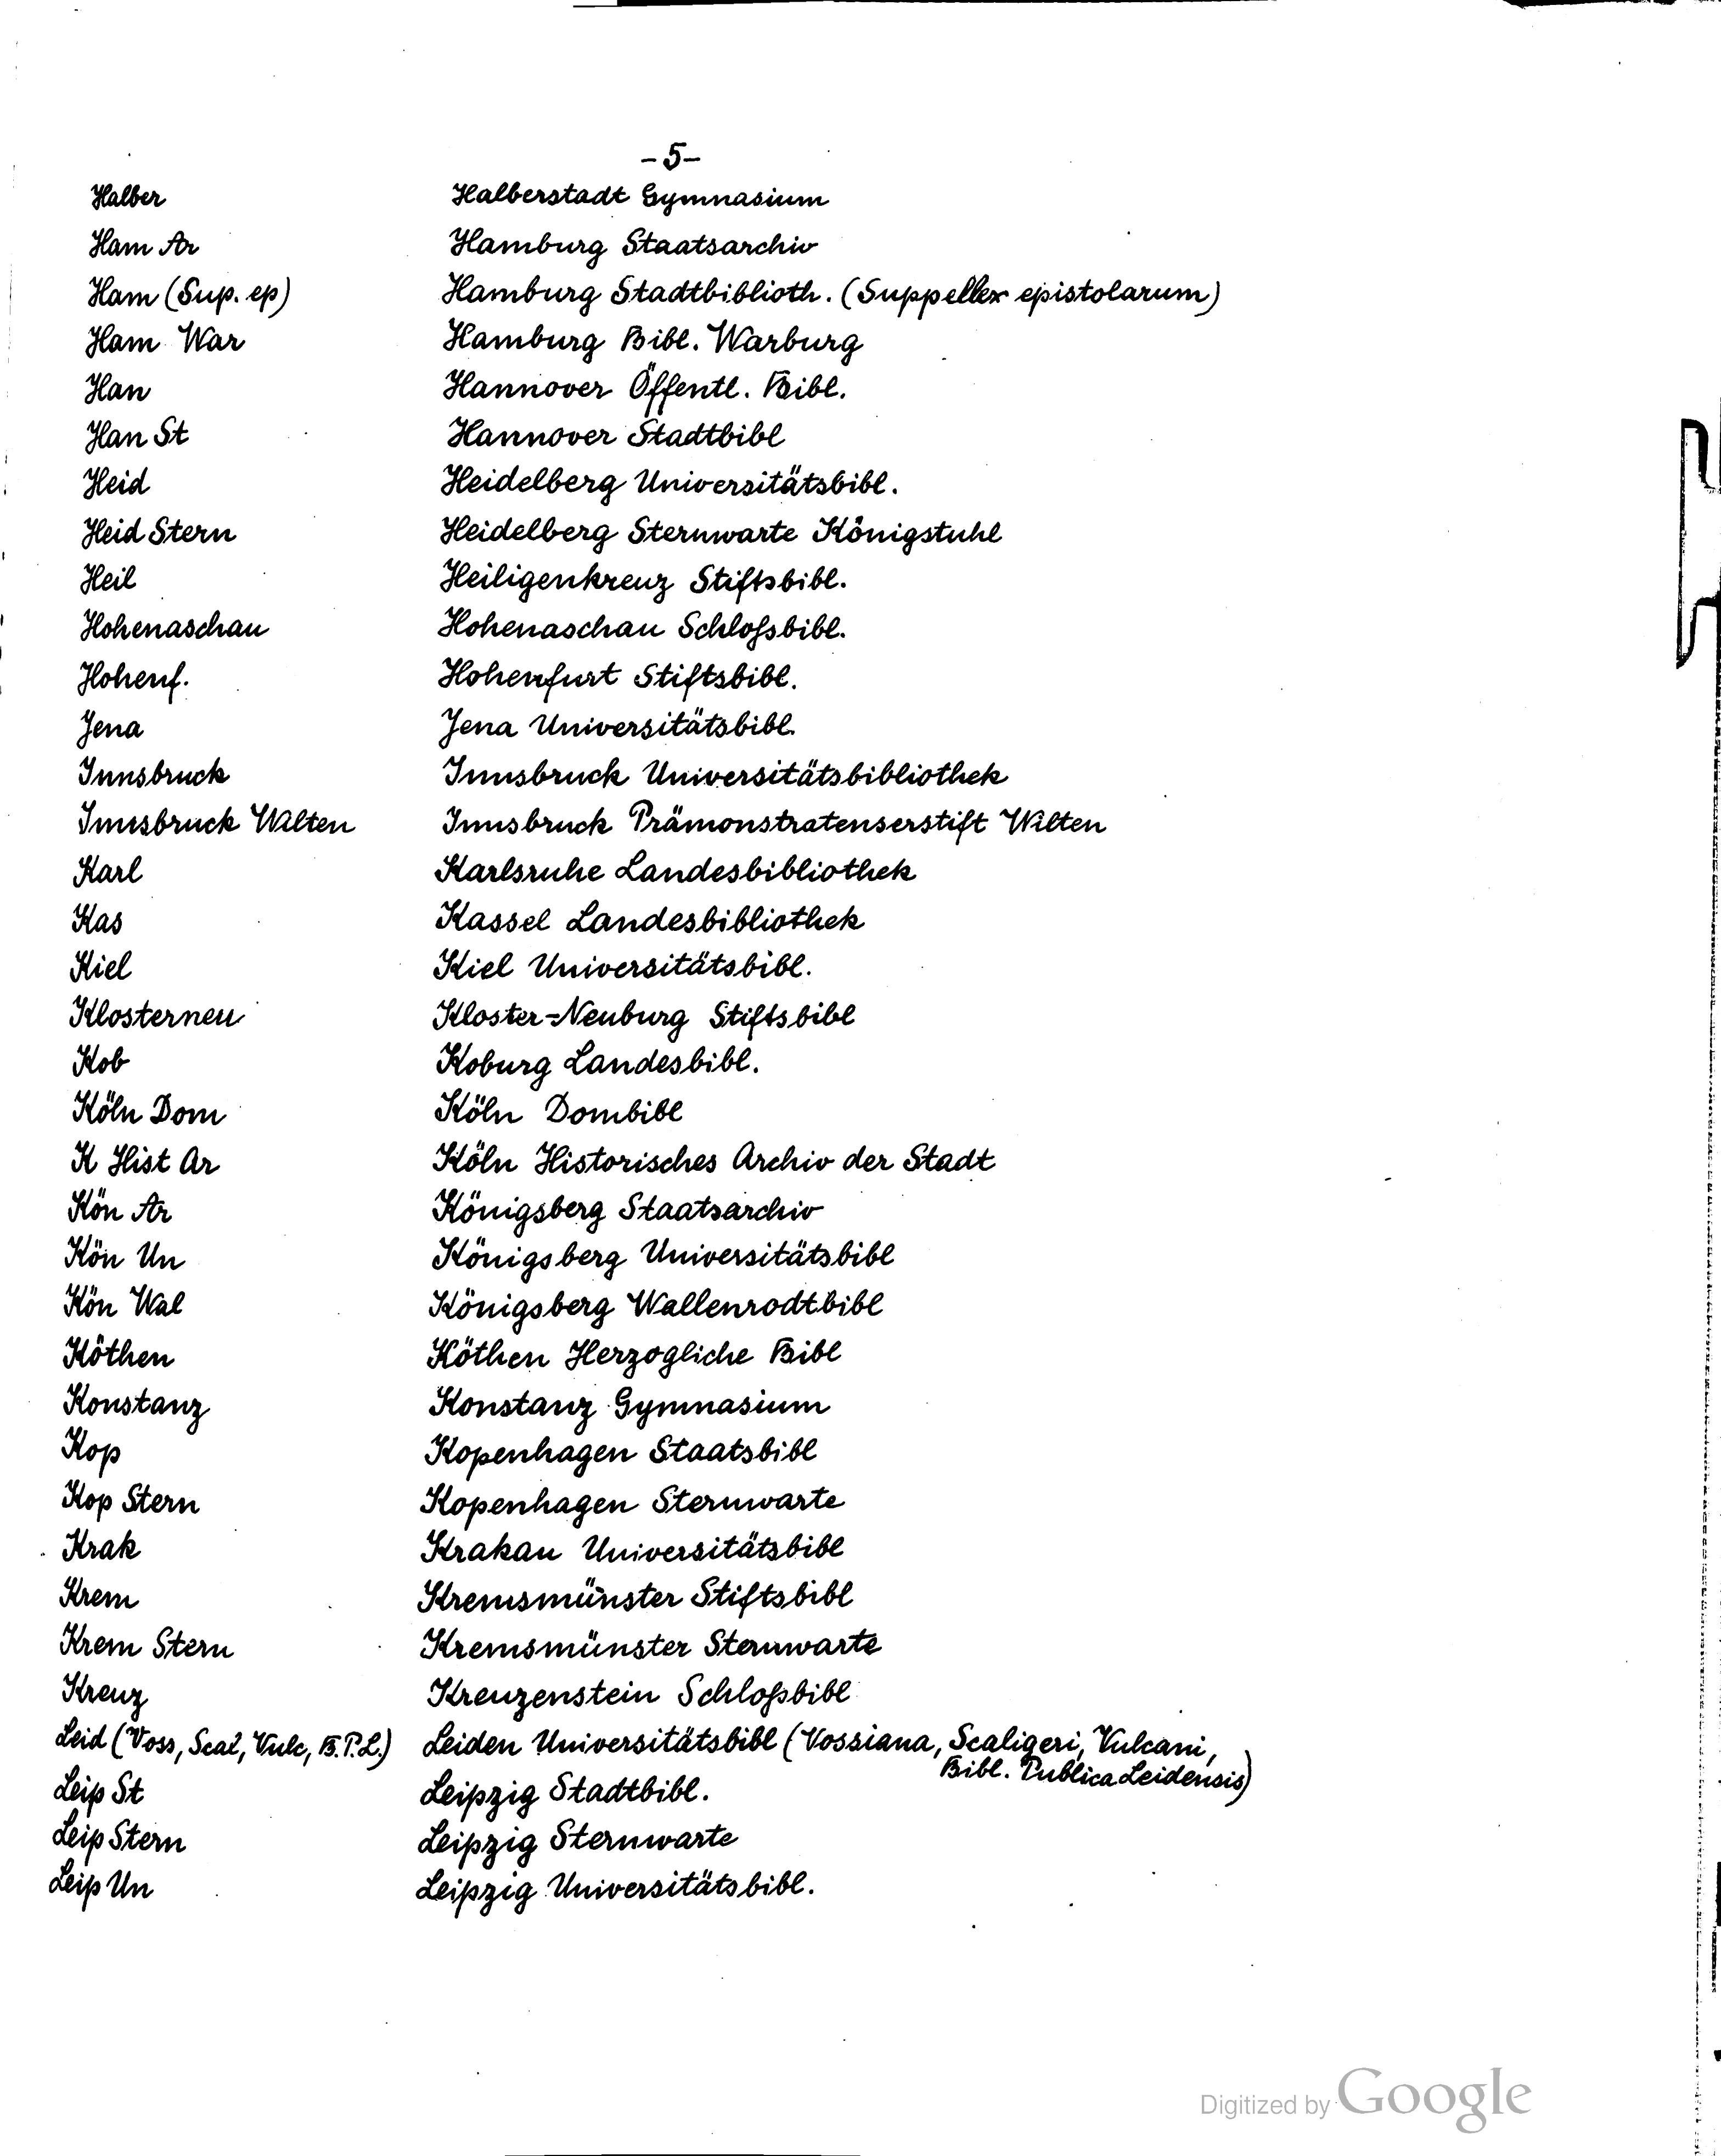 -5-
Halber Halberstadt Gymnasium
Ham Ar Hamburg Staatsarchiv
Ham (Sup. ep) Hamburg Stadtbiblioth. (Suppellex epistolarum)
Ham War Hamburg Bibl. Warburg
Han Hannover Öffentl. Bibl.
Han St Hannover Stadtbibl
Heid Heidelberg Universitätsbibl.
Heid Stern Heidelberg Sternwarte Königstuhl
Heil Heiligenkreuz Stiftsbibl.
Hohenaschau Hohenaschau Schloßbibl.
Hohenf. Hohenfurt Stiftsbibl.
Jena Jena Universitätsbibl.
Innsbruck Innsbruck Universitätsbibliothek
Innsbruck Wilten Innsbruck Prämonstratenserstift Wilten
Karl Karlsruhe Landesbibliothek
Kas Kassel Landesbibliothek
Kiel Kiel Universitätsbibl.
Klosterneu Kloster-Neuburg Stiftsbibl
Kob Koburg Landesbibl.
Köln Dom Köln Dombibl
K Hist Ar Köln Historisches Archiv der Stadt
Kön Ar Königsberg Staatsarchiv
Kön Un Königsberg Universitätsbibl
Kön Wal Königsberg Wallenrodtbibl
Köthen Köthen Herzogliche Bibl
Konstanz Konstanz Gymnasium
Kop Kopenhagen Staatsbibl
Kop Stern Kopenhagen Sternwarte
Krak Krakau Universitätsbibl
Krem Kremsmünster Stiftsbibl
Krem Stern Kremsmünster Sternwarte
Kreuz Kreuzenstein Schloßbibl
Leid (Voss, Scal, Vulc, B.P.L.) Leiden Universitätsbibl (Vossiana, Scaligeri, Vulcani,
Bibl. Publica Leidensis)
Leip St Leipzig Stadtbibl.
Leip Stern Leipzig Sternwarte
Leip Un Leipzig Universitätsbibl.
Digitized by Google